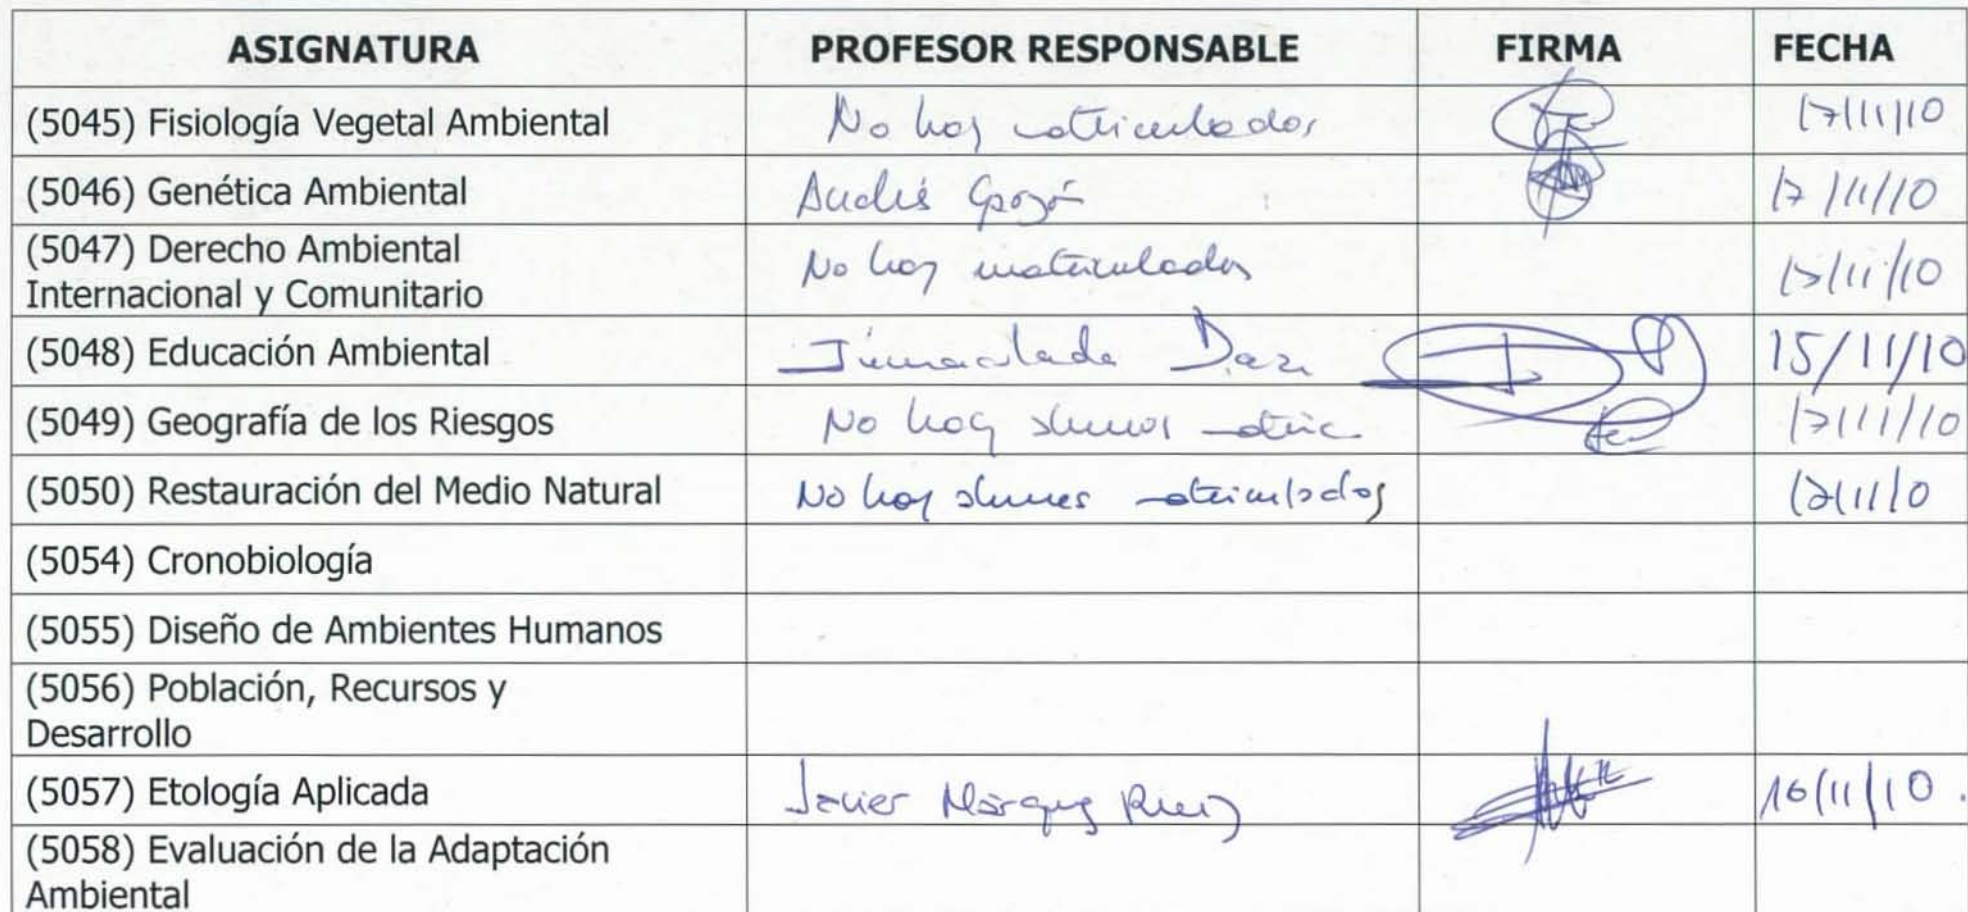 ASIGNATURA PROFESOR RESPONSABLE FIRMA FECHA
(5045) Fisiología Vegetal Ambiental No hay matriculados 17/11/10
(5046) Genética Ambiental Andrés 17/11/10
(5047) Derecho Ambiental
Internacional y Comunitario No hay matriculados 17/11/10
(5048) Educación Ambiental Inmaculada Díaz 15/11/10
(5049) Geografía de los Riesgos No hay alumnos matric. 17/11/10
(5050) Restauración del Medio Natural No hay alumnos matriculados
(5054) Cronobiología
(5055) Diseño de Ambientes Humanos
(5056) Población, Recursos y
Desarrollo
(5057) Etología Aplicada Javier Márquez Ruiz 16/11/10.
(5058) Evaluación de la Adaptación
Ambiental